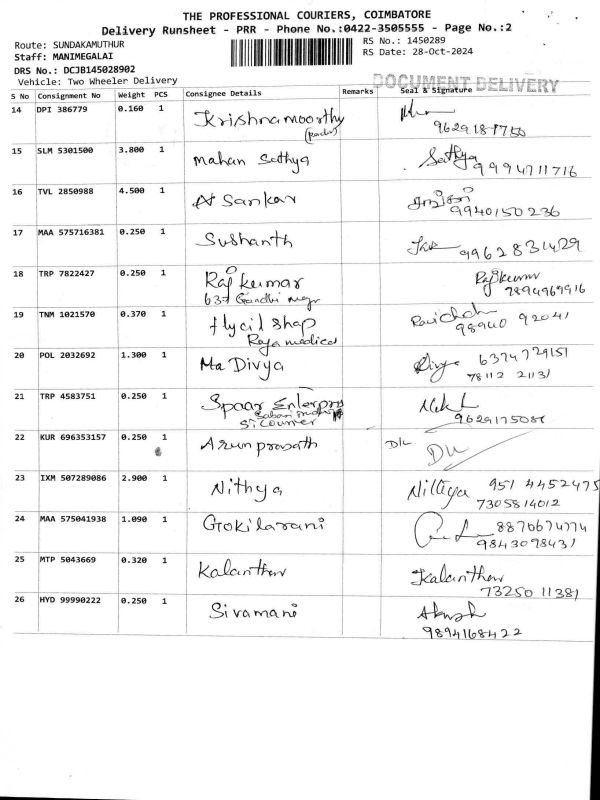 THE PROFESSIONAL COURIERS, COIMBATORE
Delivery Runsheet - PRR - Phone No.:0422-3505555 - Page No.:2
Route: SUNDAKAMUTHUR RS No.: 1450289
Staff: MANIMEGALAI RS Date: 28-Oct-2024
DRS No.: DCJB145028902
Vehicle: Two Wheeler Delivery DOCUMENT DELIVERY
S No Consignment No Weight PCS Consignee Details Remarks Seal & Signature
14 DPI 386779 0.160 1 Krishnamoorthy
9629181750
15 SLM 5301500 3.800 1 Mahan Sathya Sathya 9994711716
16 TVL 2850988 4.500 1 N Sankar
9940150236
17 MAA 575716381 0.250 1 Sushanth 9962831429
18 TRP 7822427 0.250 1 Raj kumar Rajkumar
637 Gandhi 7894969916
19 TNM 1021570 0.370 1 shop Ravichah
Raja medical 98940 92041
20 POL 2032692 1.300 1 Ma Divya Divya 6374729151
78112 21131
21 TRP 4583751 0.250 1 Spaar Enterprs
9629175086
22 KUR 696353157 0.250 1 Arunprasath D/L
23 IXM 507289086 2.900 1 Nithya Nithya 951 4452475
7305814012
24 MAA 575041938 1.090 1 Gokilarani 8870674774
9843098431
25 MTP 5043669 0.320 1 Kalanthar Kalanthar
73250 11381
26 HYD 99990222 0.250 1 Sivamani Akash
9894168422